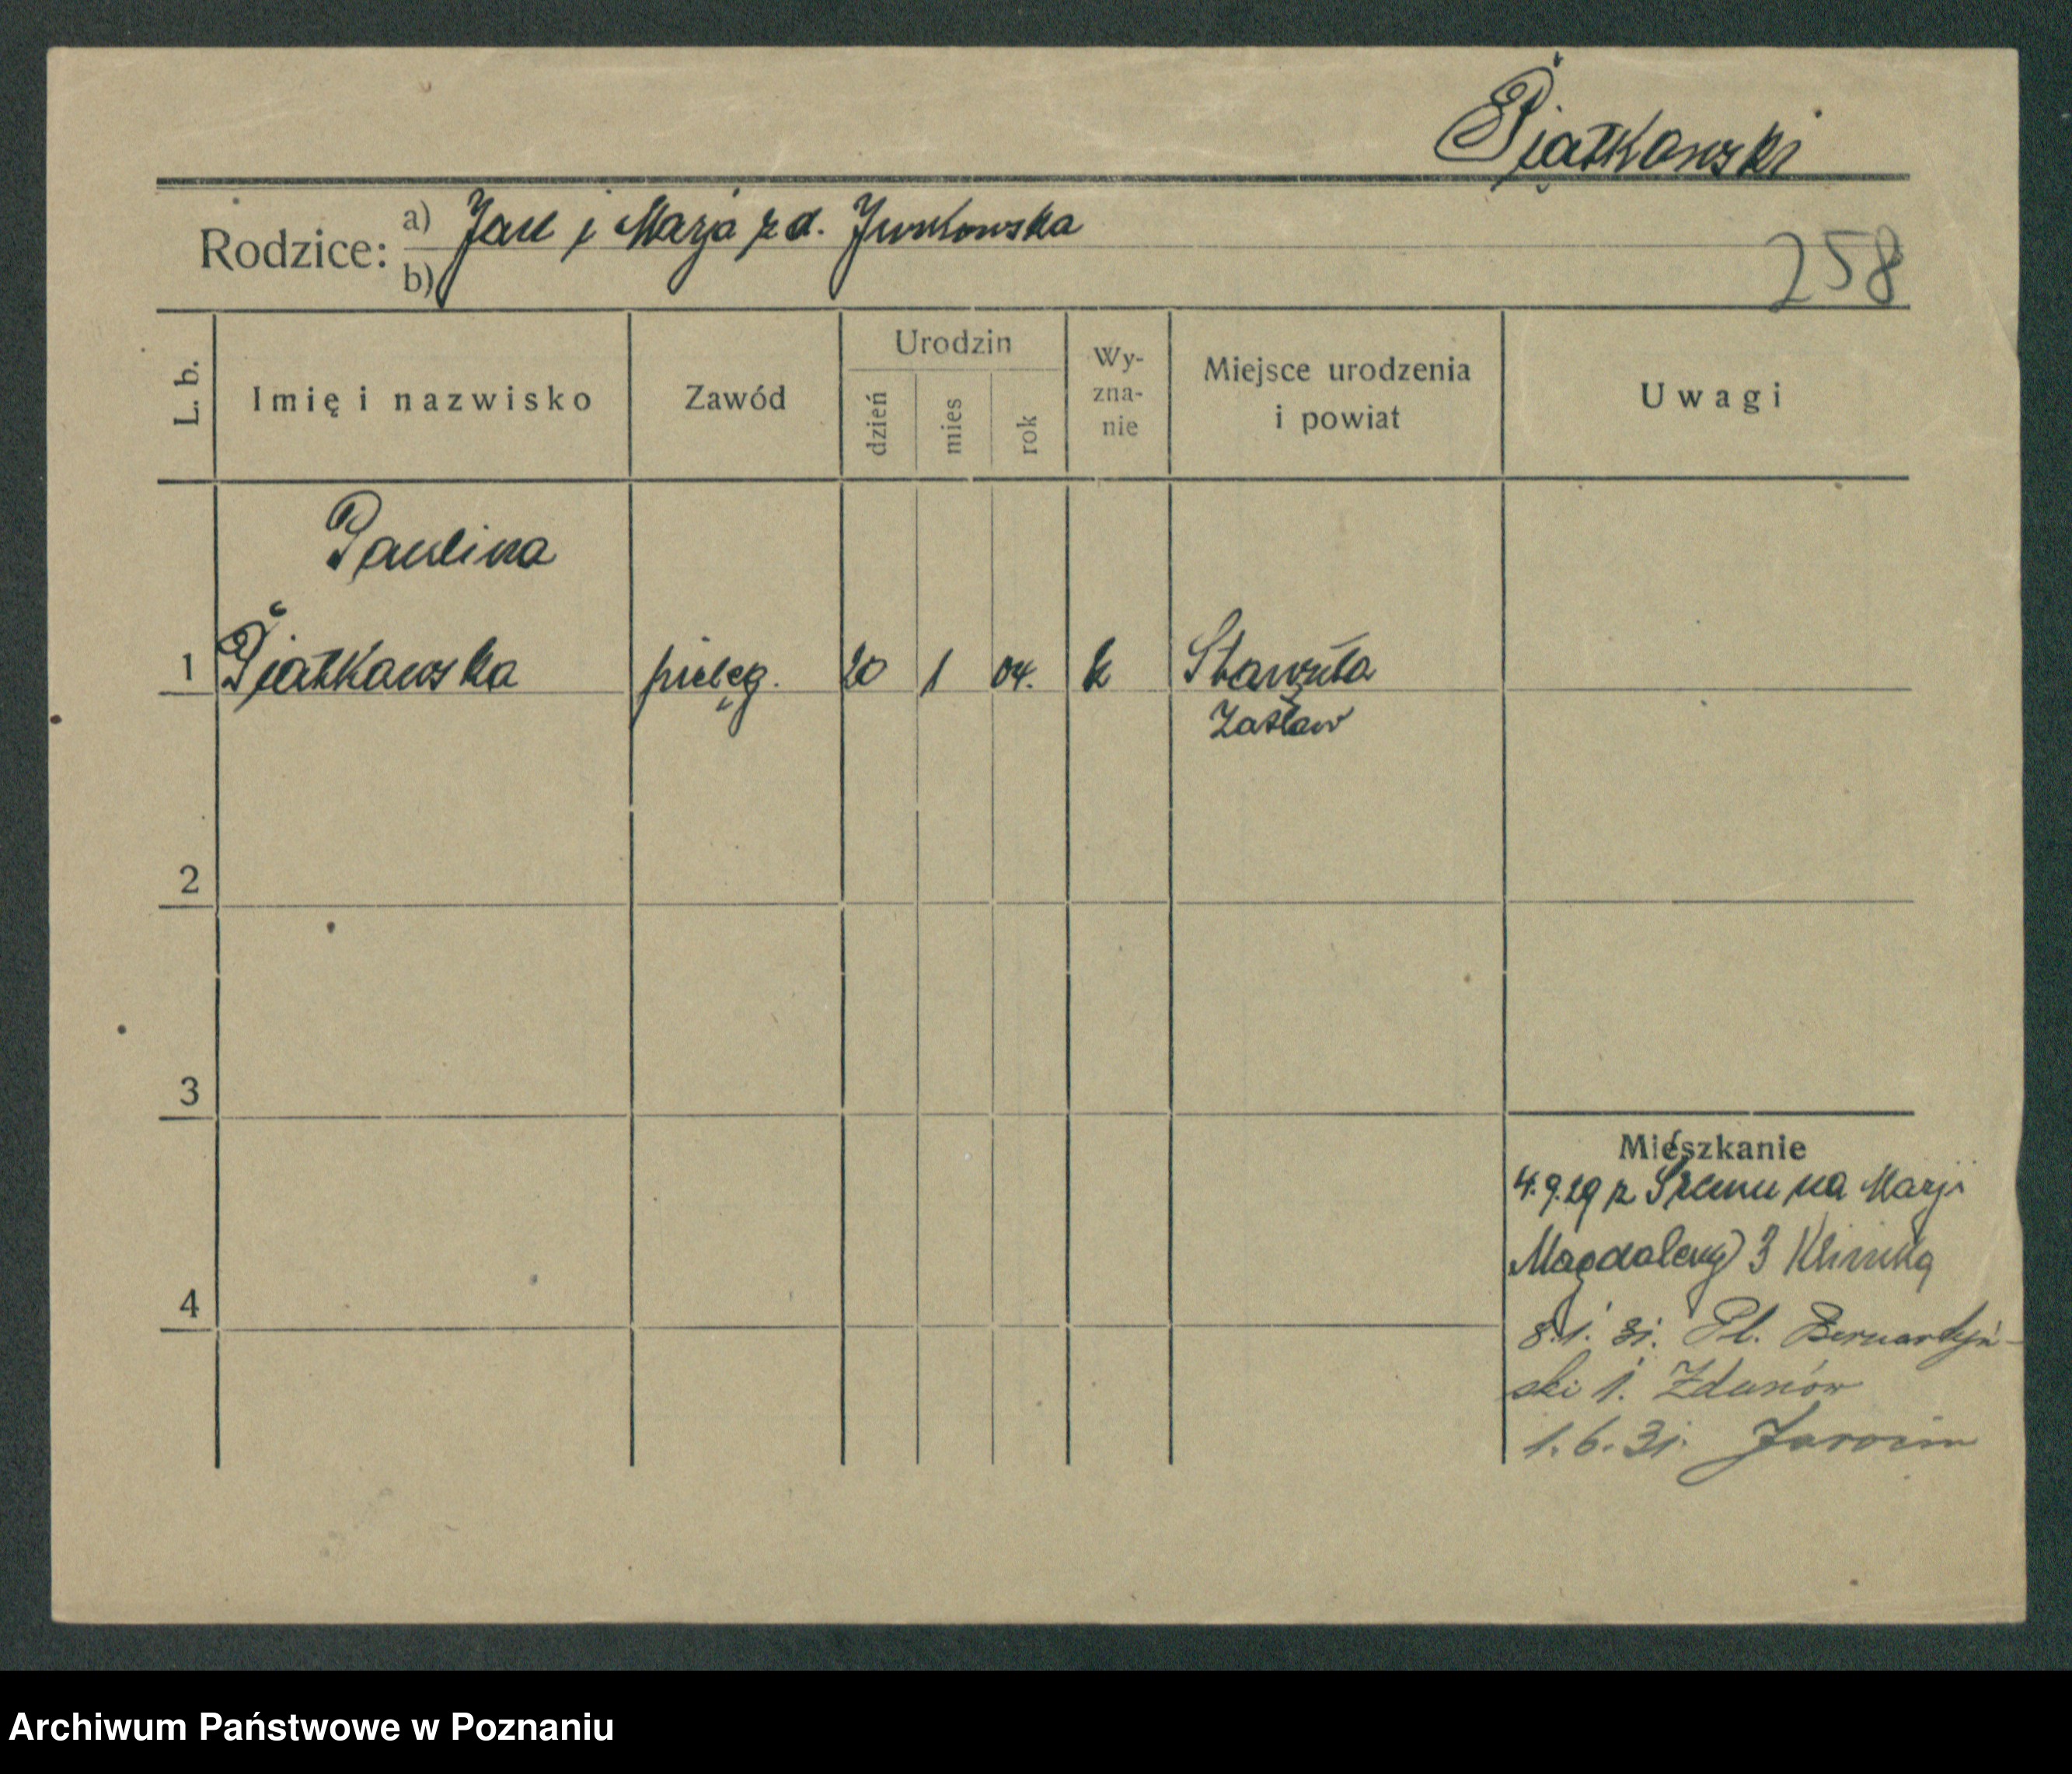 Piątkowski
Rodzice: a) Jan i Marja z d.
b)
258
L. b.
Imię i nazwisko
Zawód
Urodzin
dzień
mies
rok
Wy-
zna-
nie
Miejsce urodzenia
i powiat
Uwagi
Paulina
1 Piątkowska pielęg. 20 1 04. k
Zasław
2
3
4
Mieszkanie
4.9.29 z Śremu na Marji
Magdaleny 3 Kliniką
8.1.31. Pl. Bernardyń-
ski 1. Zdunów
1.6.31. Jarocin
Archiwum Państwowe w Poznaniu